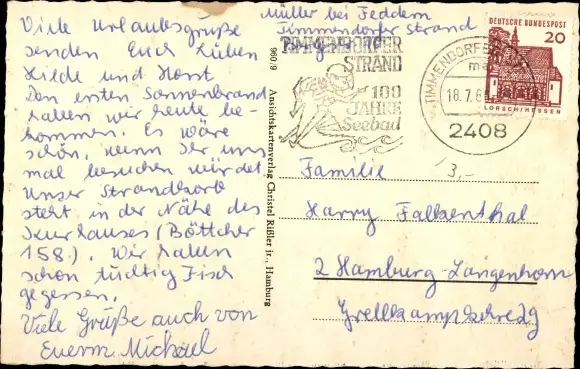 Viele Urlaubsgrüße
senden Euch Lieben
Hilde und Horst
Den ersten Sonnenbrand
haben wir heute be-
kommen. Es wäre
schön, wenn Ihr uns
mal besuchen würdet
Unser Strandkorb
steht in der Nähe des
Kurhauses (Böttcher
158.). Wir haben
schon tüchtig Fisch
gegessen.
Viele Grüße auch von
Euerm Michael
Müller bei Feddern
Timmendorfer Strand
96019 Ansichtskartenverlag Christel Rißler jr., Hamburg
TIMMENDORFER
STRAND
100
JAHRE
Seebad
TIMMENDORFER
18.7.6
2408
DEUTSCHE BUNDESPOST
20
LORSCH/HESSEN
3,-
Familie
Harry Falkenthal
2 Hamburg-Langenhorn